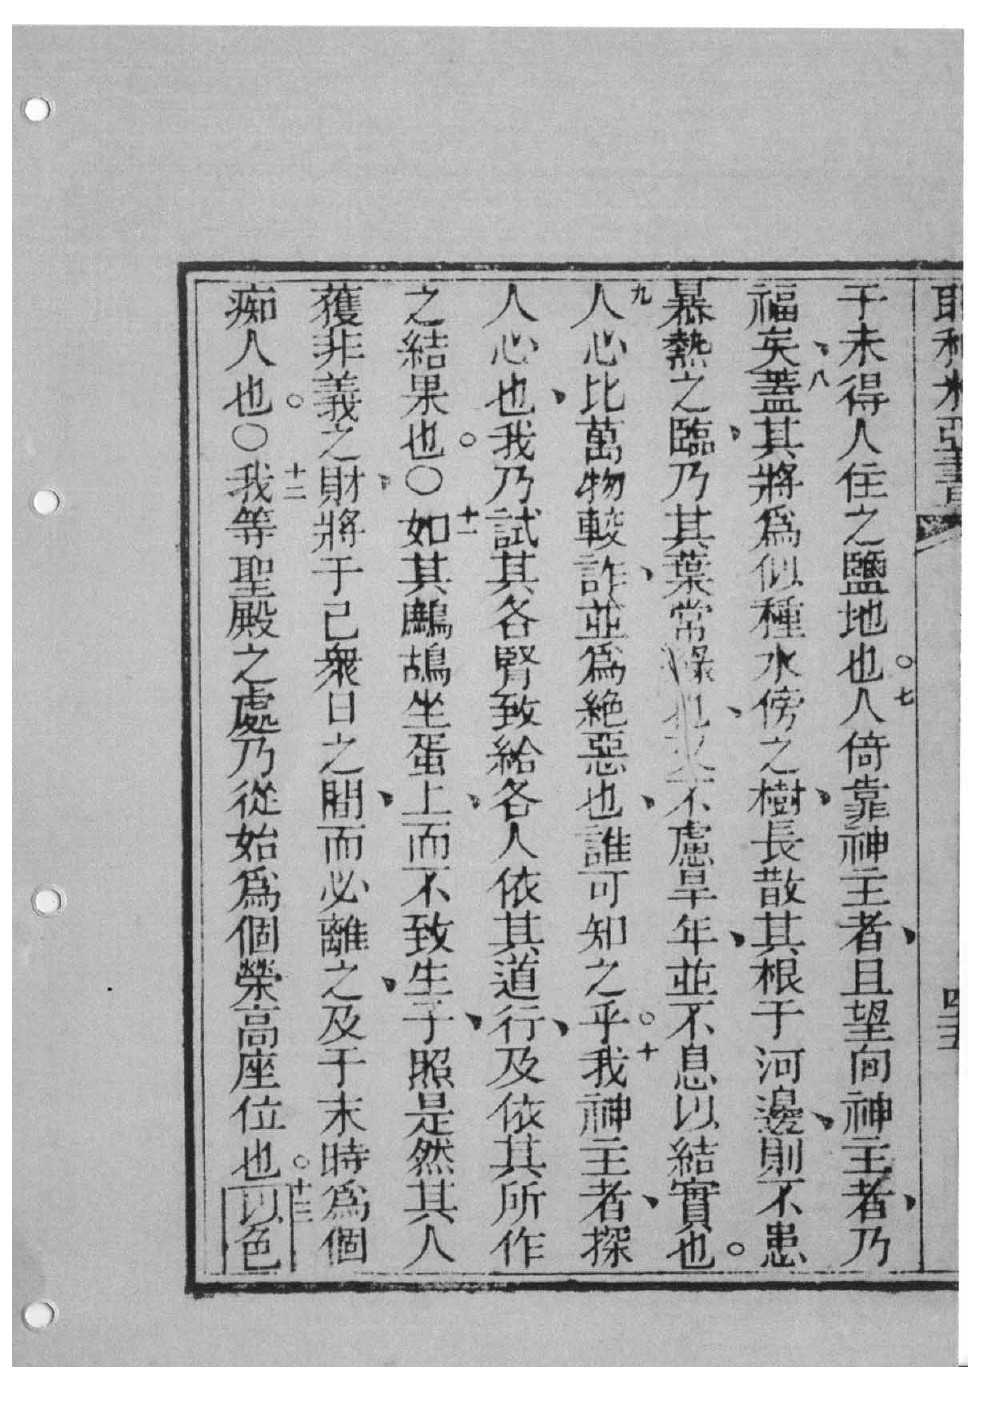 耶利米亞書 四五
于未得人住之鹽地也。七人倚靠神主者、且望向神主者、乃
福矣、八蓋其將爲似種水傍之樹、長散其根于河邊、則不患
暴熱之臨、乃其葉常綠也、又不慮旱年、並不息以結實也。
九人心比萬物較詐、並爲絕惡也、誰可知之乎。十我神主者、探
人心也、我乃試其各腎、致給各人依其道行、及依其所作
之結果也。〇十一如其鷓鴣坐蛋上、而不致生子、照是然其人
獲非義之財、將于己衆日之間、而必離之、及于末時爲個
痴人也。〇十二我等聖殿之處、乃從始爲個榮高座位也。十三以色